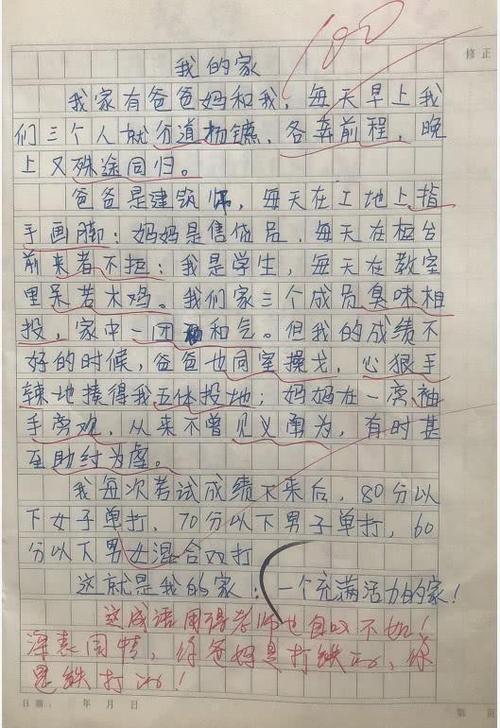 100
修正
我的家
我家有爸爸妈和我，每天早上我
们三个人就分道杨镳，各奔前程，晚
上又殊途同归。
爸爸是建筑师，每天在工地上指
手画脚；妈妈是售货员，每天在柜台
前来者不拒；我是学生，每天在教室
里呆若木鸡。我们家三个成员臭味相
投，家中一团和气。但我的成绩不
好的时候，爸爸也同室操戈，心狠手
辣地揍得我五体投地；妈妈在一旁袖
手旁观，从来不曾见义勇为，有时甚
至助纣为虐。
我每次考试成绩下来后，80分以
下女子单打，70分以下男子单打，60
分以下男女混合双打
这就是我的家：一个充满活力的家！
这成语用得老师也自叹不如！
你爸妈是打铁的，你
是铁打的！
日期： 年 月 日
第 页